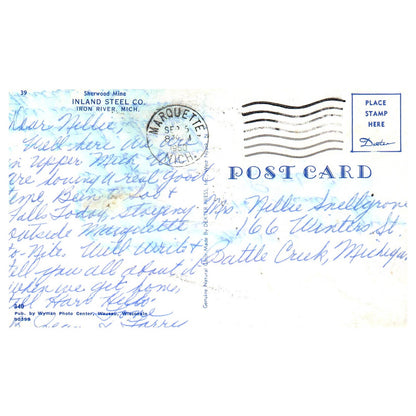 39
Sherwood Mine
INLAND STEEL CO.
IRON RIVER, MICH.
Dear Nillie,
Well here we
in Upper Mich.
are having a real good
time. Been to Soo &
Falls Today, staying
outside Marquette
to-Nite. Will write &
tell you all about it
when we get home.
MARQUETTE
SEP 5
MICH.
PLACE
STAMP
HERE
Dexter
POST CARD
Mrs. Nillie Snellgrove
166 Winters St.
Battle Creek, Michigan
540
Pub. by Wyman Photo Center, Wausau, Wisconsin
50398